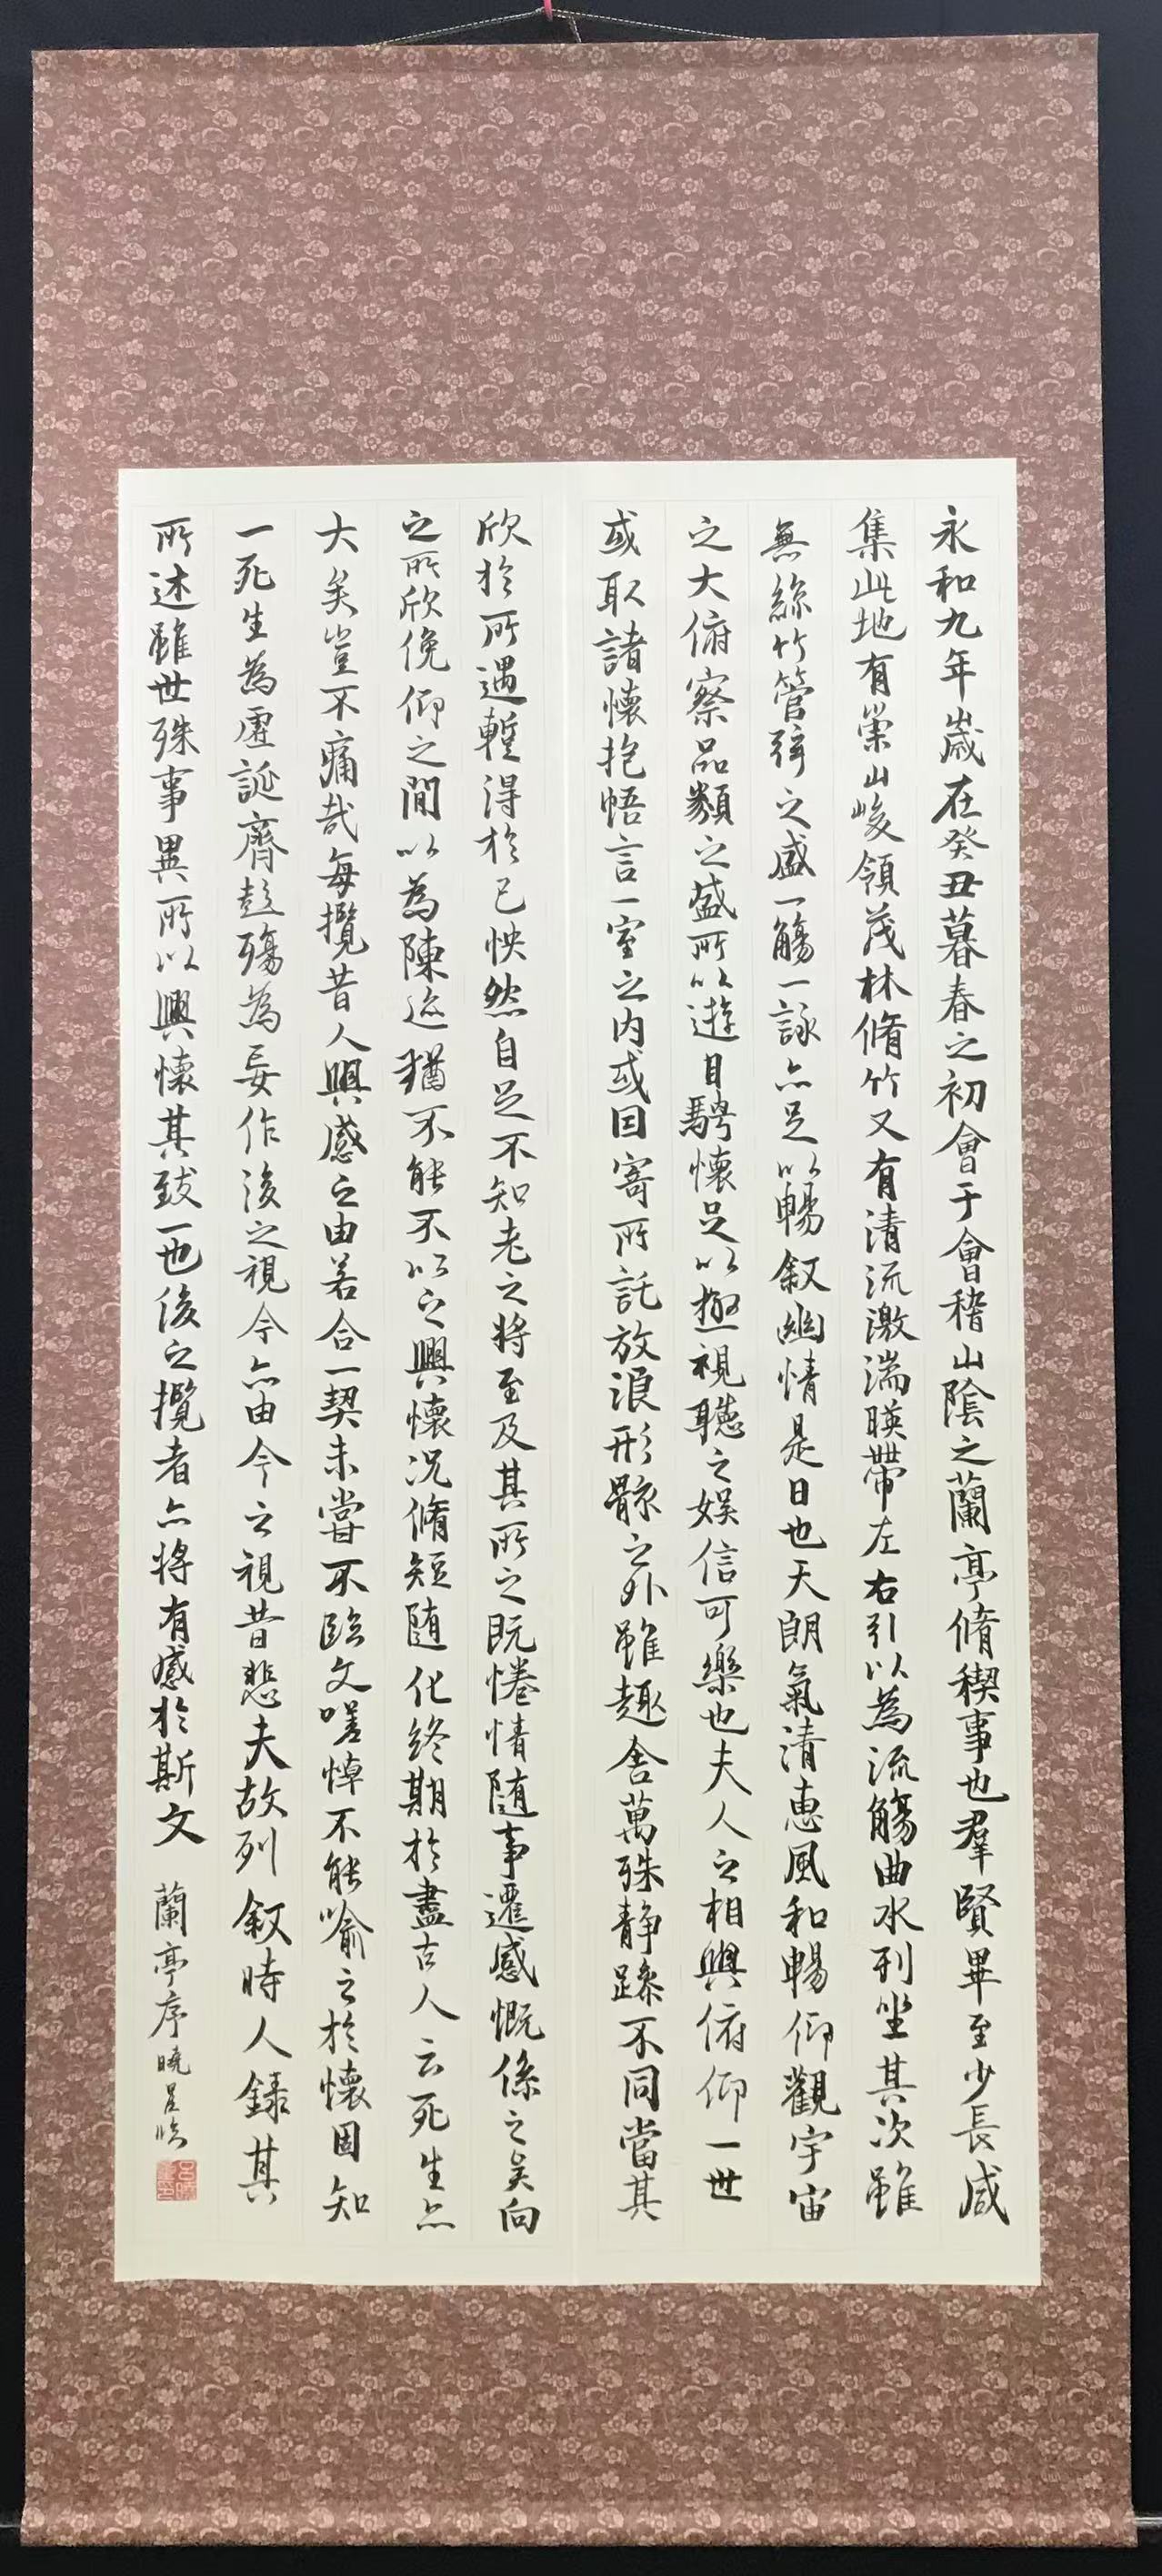 永和九年歲在癸丑暮春之初會于會稽山陰之蘭亭脩稧事也羣賢畢至少長咸
集此地有崇山峻領茂林脩竹又有清流激湍暎帶左右引以為流觴曲水列坐其次雖
無絲竹管弦之盛一觴一詠亦足以暢叙幽情是日也天朗氣清惠風和暢仰觀宇宙
之大俯察品類之盛所以遊目騁懷足以極視聽之娛信可樂也夫人之相與俯仰一世
或取諸懷抱悟言一室之内或因寄所託放浪形骸之外雖趣舍萬殊静躁不同當其
欣於所遇蹔得於己怏然自足不知老之將至及其所之既惓情随事遷感慨係之矣向
之所欣俛仰之間以為陳迹猶不能不以之興懷况脩短随化終期於盡古人云死生亦
大矣豈不痛哉每攬昔人興感之由若合一契未嘗不臨文嗟悼不能喻之於懷固知
一死生為虛誕齊彭殤為妄作後之視今亦由今之視昔悲夫故列叙時人錄其
所述雖世殊事異所以興懷其致一也後之攬者亦將有感於斯文 蘭亭序 曉 臨